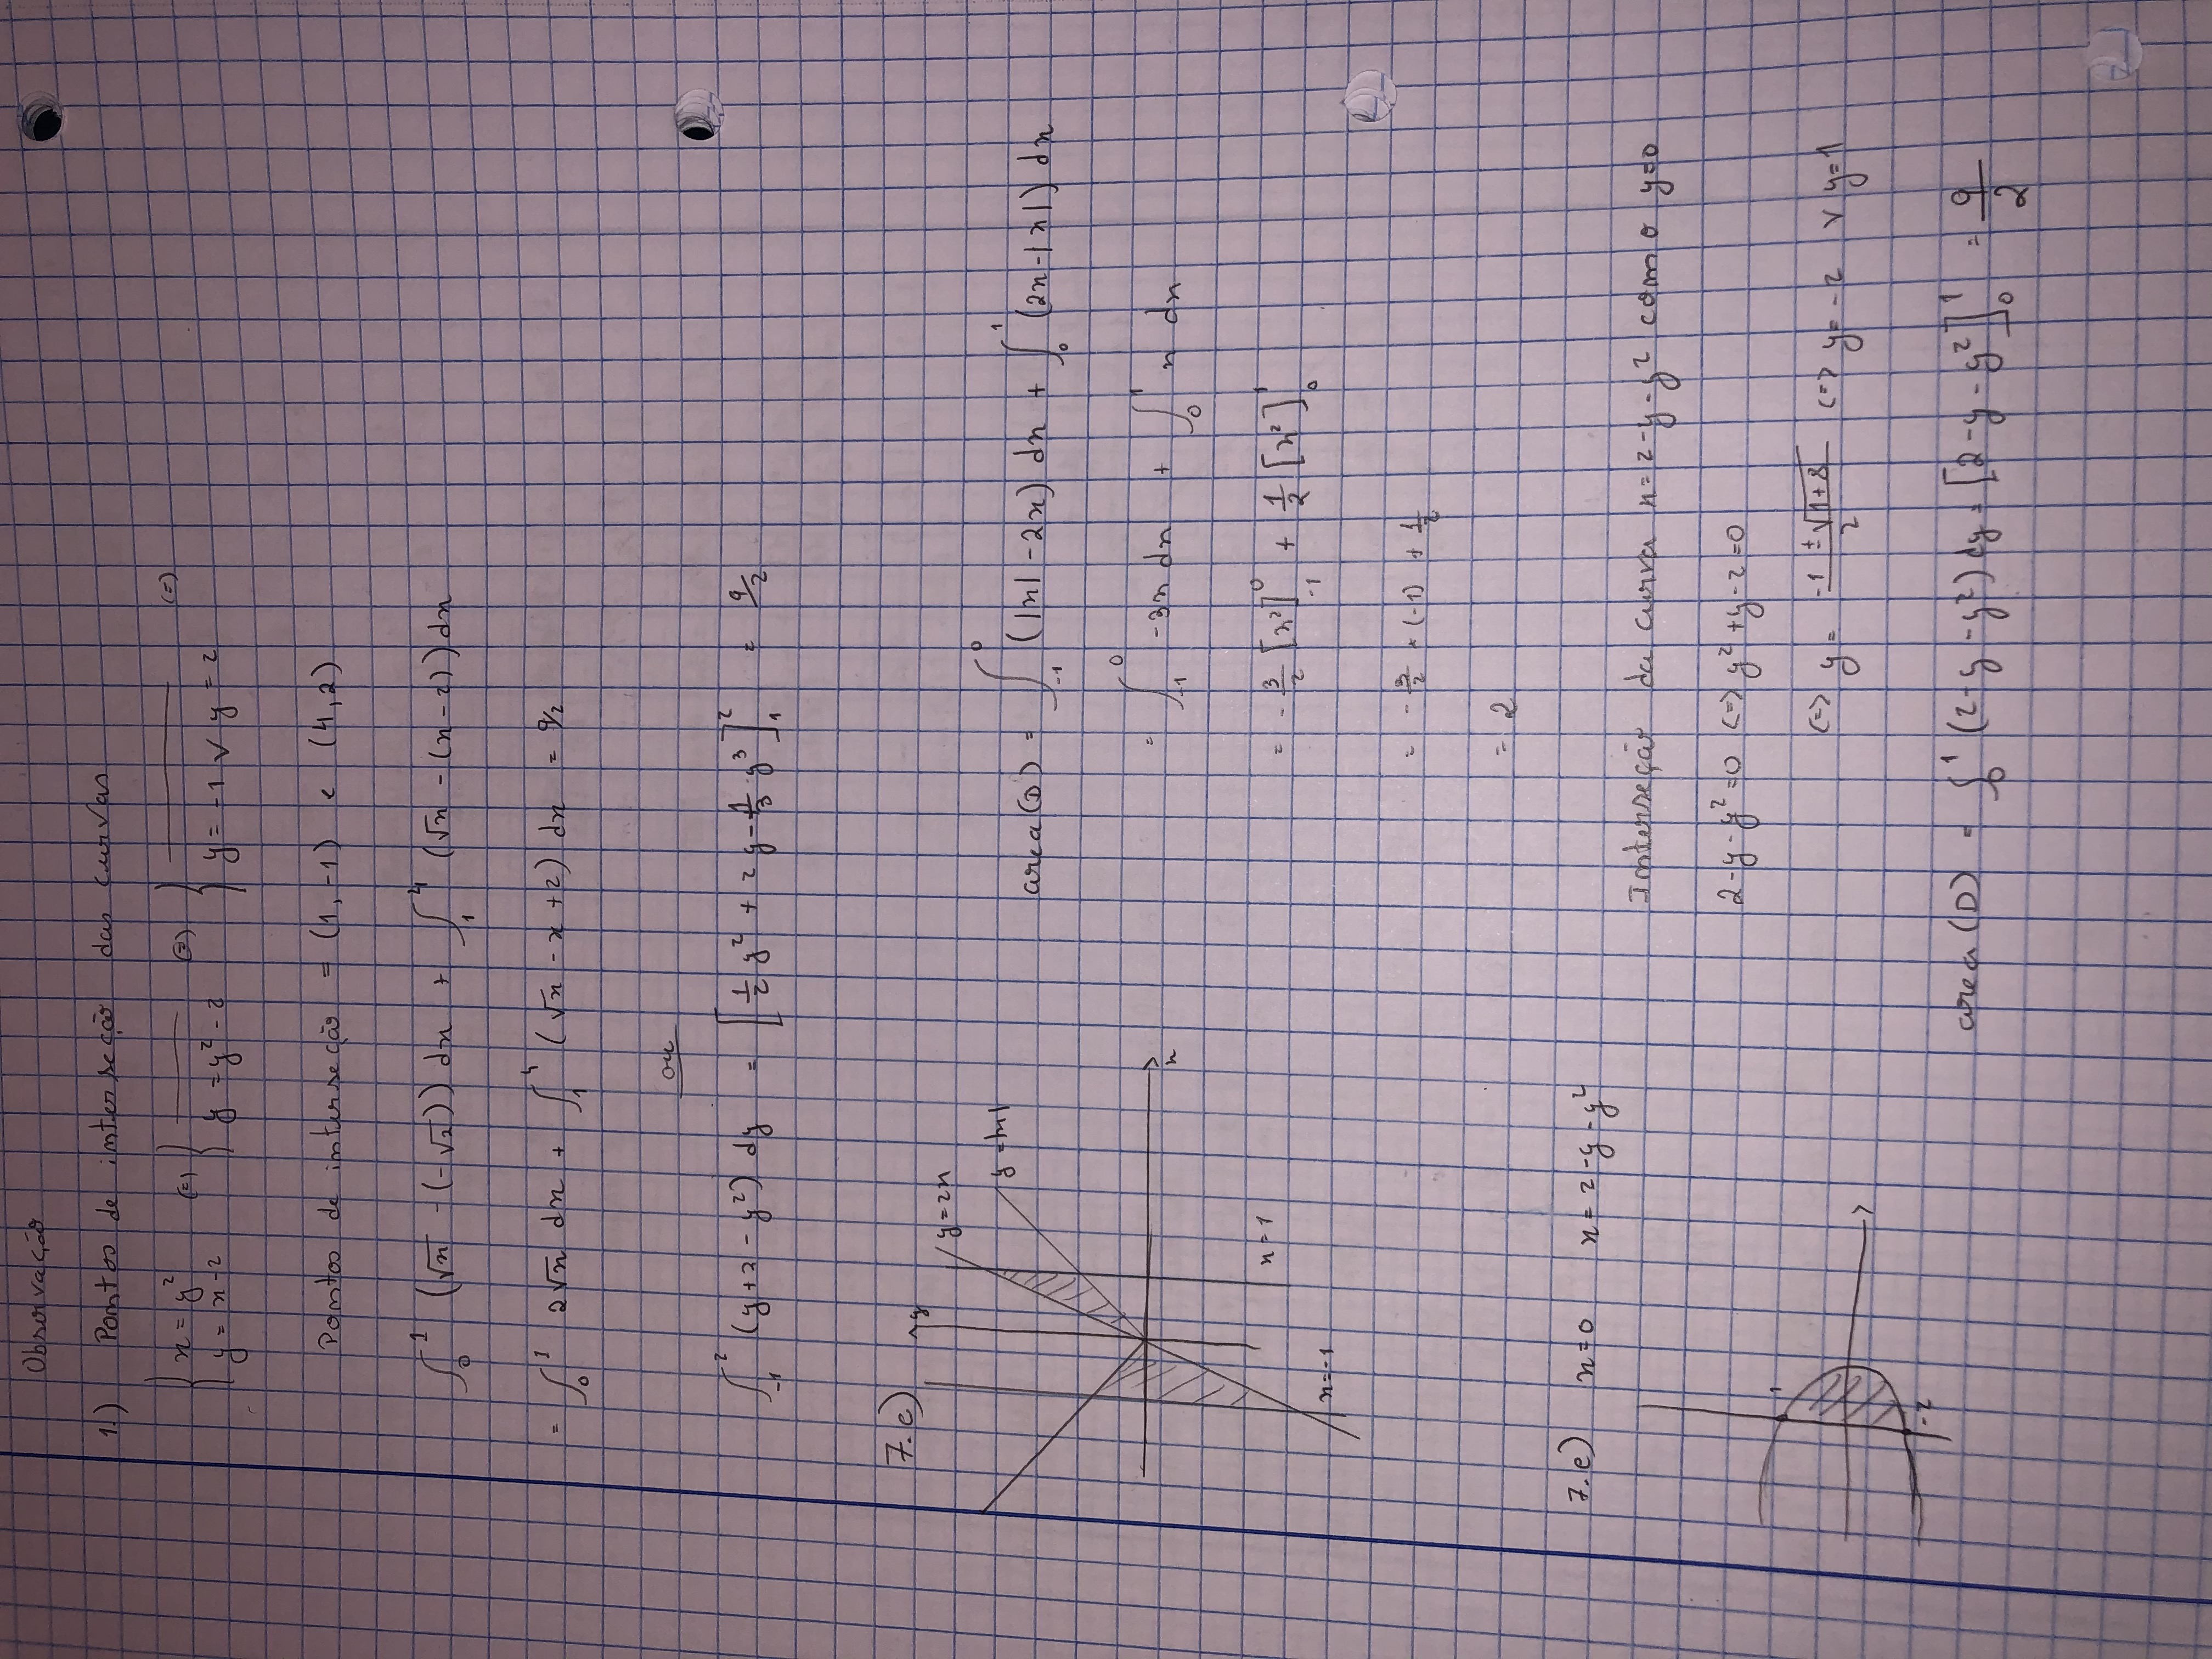 Observação
1.) Pontos de interseção das curvas
{ x = y² (=) { ——— (=) { ——— (=)
{ y = x-2 { y = y² - 2 { y = -1 ∨ y = 2
Pontos de interseção = (1, -1) e (4,2)
∫₀¹ (√x - (-√2)) dx + ∫₁⁴ (√x - (x-2)) dx
= ∫₀¹ 2√x dx + ∫₁⁴ (√x - x + 2) dx = 9/2
ou
∫₋₁² (y+2-y²) dy = [1/2 y² + 2y - 1/3 y³]₁² = 9/2
7.c)
y
y = 2x
y = |x|
x
x = 1
x = -1
area(D) = ∫₋₁⁰ (|x| - 2x) dx + ∫₀¹ (2x - |x|) dx
= ∫₋₁⁰ -3x dx + ∫₀¹ x dx
= - 3/2 [x²]₋₁⁰ + 1/2 [x²]₀¹
= - 3/2 × (-1) + 1/2
= 2
7.e) x=0 x = 2-y-y²
1
-2
Interseção da curva x = 2-y-y² com o y=0
2-y-y² = 0 (=) y² + y - 2 = 0
(=) y = (-1 ± √(1+8))/2 (=) y = -2 ∨ y = 1
area (D) = ∫₀¹ (2-y-y²) dy = [2-y-y²]₀¹ = 9/2